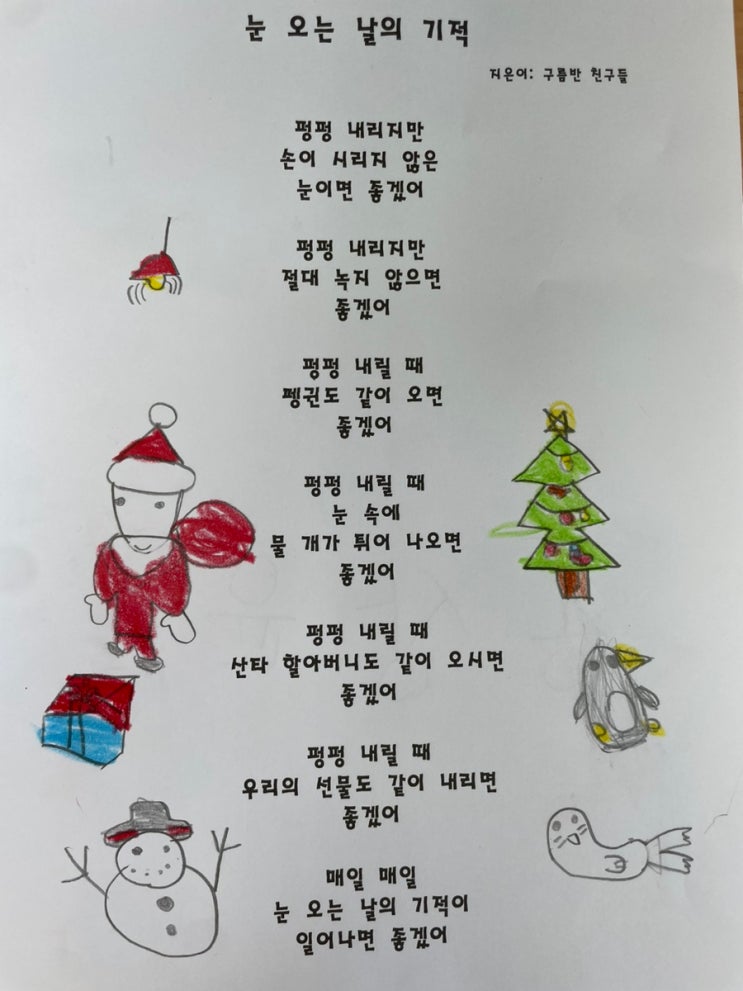 눈 오는 날의 기적
지은이: 구름반 친구들
펑펑 내리지만
손이 시리지 않은
눈이면 좋겠어
펑펑 내리지만
절대 녹지 않으면
좋겠어
펑펑 내릴 때
펭귄도 같이 오면
좋겠어
펑펑 내릴 때
눈 속에
물 개가 튀어 나오면
좋겠어
펑펑 내릴 때
산타 할아버니도 같이 오시면
좋겠어
펑펑 내릴 때
우리의 선물도 같이 내리면
좋겠어
매일 매일
눈 오는 날의 기적이
일어나면 좋겠어